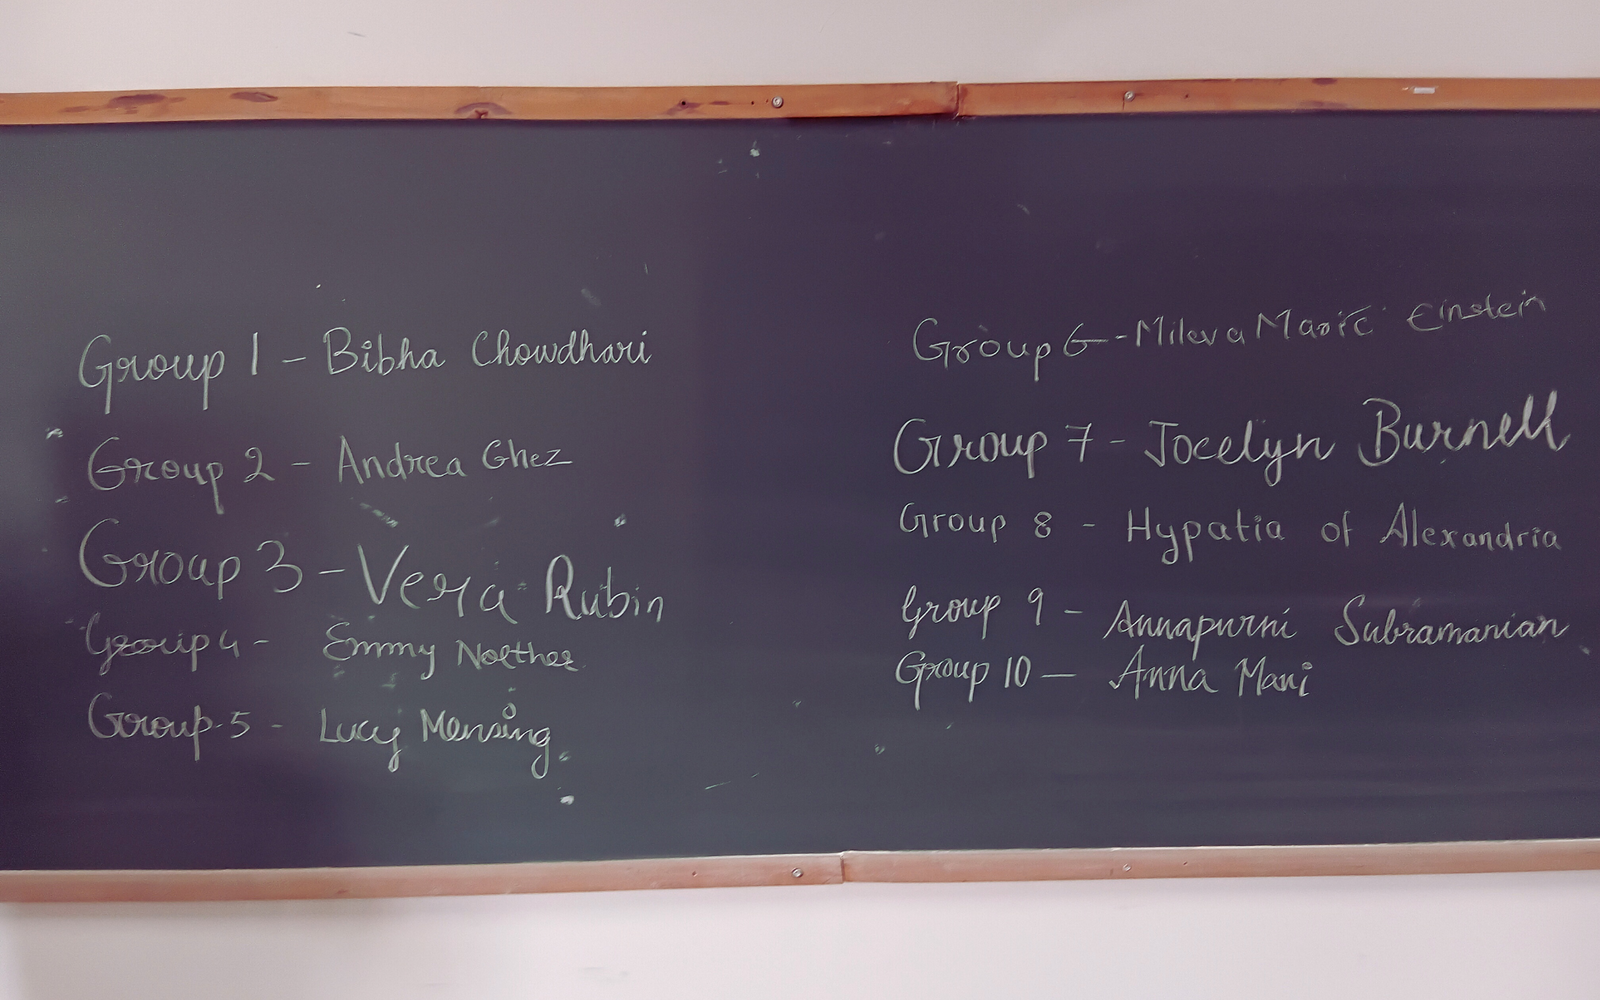 Group 1 - Bibha Chowdhari
Group 2 - Andrea Ghez
Group 3 - Vera Rubin
Group 4 - Emmy Noether
Group 5 - Lucy Mensing
Group 6 - Mileva Maric Einstein
Group 7 - Jocelyn Burnell
Group 8 - Hypatia of Alexandria
Group 9 - Annapurni Subramanian
Group 10 - Anna Mani